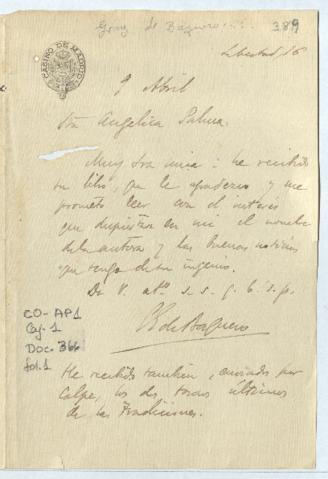 Gomz de Baquero... 389
CASINO DE MADRID
Libertad 16
9 Abril
Sra Angélica Palma.
Muy Sra mía: he recibido
su libro, que le agradezco y me
prometo leer con el interés
que despiertan en mí el nombre
de la autora y las buenas noticias
que tengo de su ingenio.
De V. atº s. s. q. b. s. p.
E G de Baquero
CO-AP1
Caj. 1
Doc. 366
fol. 1
He recibido también, enviados por
Calpe, los dos tomos últimos
de las Tradiciones.